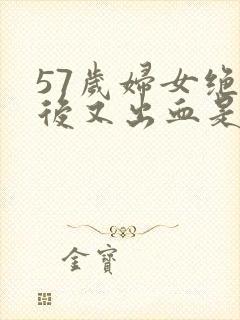 57歲婦女绝
後又出血是
金寶